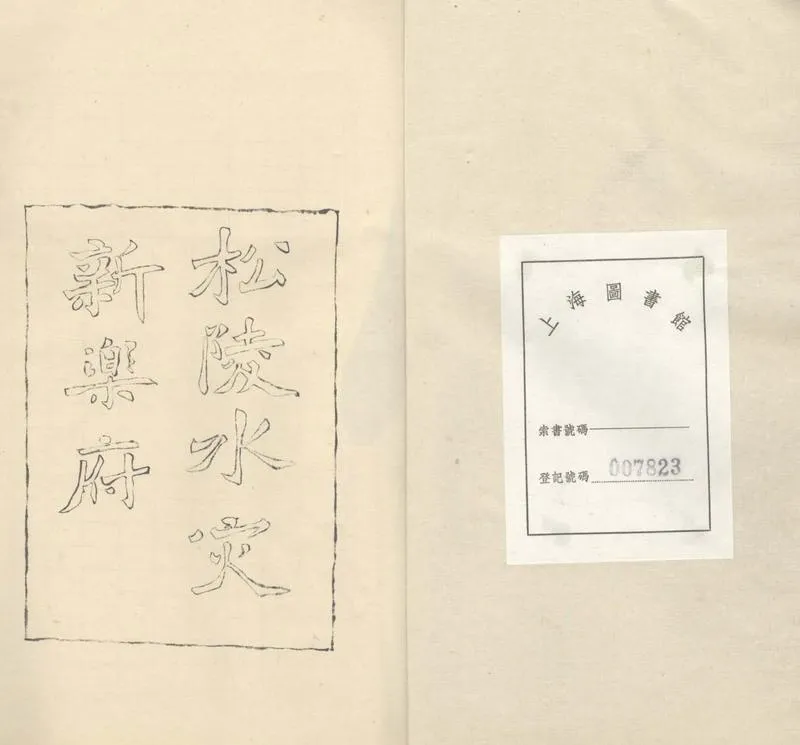 松陵水灾
新樂府
上海圖書館
索書號碼
登記號碼 007823